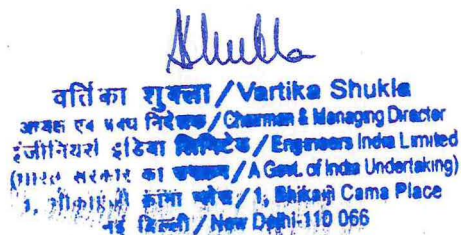 Shukla
वर्तिका शुक्ला / Vartika Shukla
अध्यक्ष एवं प्रबंध निदेशक / Chairman & Managing Director
इंजीनियर्स इंडिया लिमिटेड / Engineers India Limited
(भारत सरकार का उपक्रम / A Govt. of India Undertaking)
1, भीकाएजी कामा प्लेस / 1, Bhikaiji Cama Place
नई दिल्ली / New Delhi-110 066